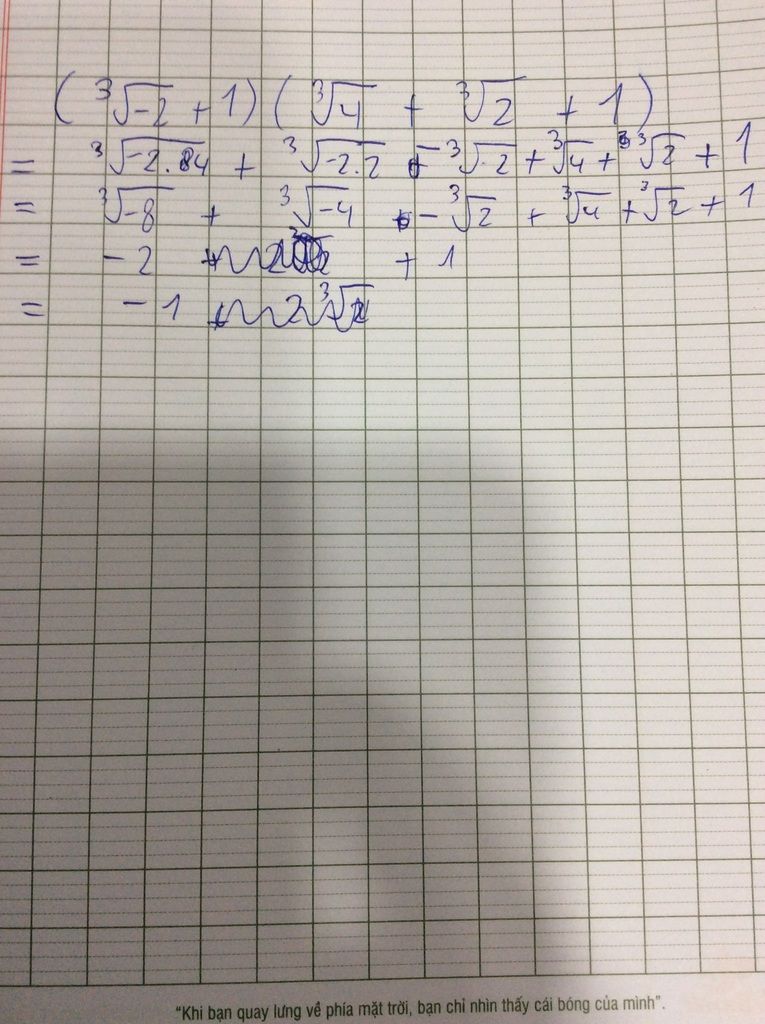 (∛-2 + 1)(∛4 + ∛2 + 1)
= ∛-2.4 + ∛-2.2 - ∛2 + ∛4 + ∛2 + 1
= ∛-8 + ∛-4 - ∛2 + ∛4 + ∛2 + 1
= -2 + 1
= -1
"Khi bạn quay lưng về phía mặt trời, bạn chỉ nhìn thấy cái bóng của mình".